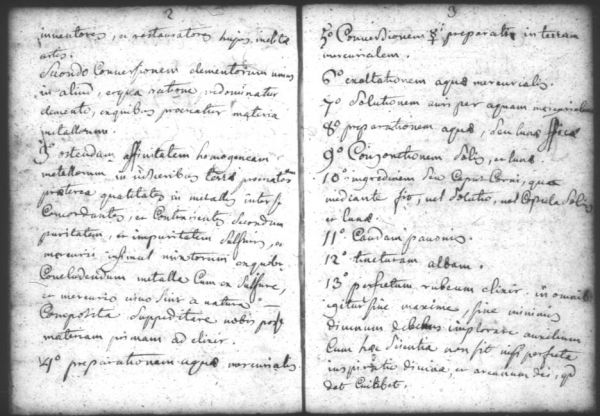 2
inventores, et restauratores hujus inclitæ
artis.
Secundo Conversionem elementorum unius
in aliud, et qua ratione dominatur
elemento, ex quibus procreatur materia
metallorum.
3º ostendam affinitatem homogeneam
metallorum in visceribus terræ procreatorum
præterea qualitates in metallis inter se
Concordantes, et Continentes secundum
puritatem, et impuritatem sulfuris, et
mercurii, mixtorum ex quibus
Concludendum metalla Cum ex sulfure,
et mercurio vivo sint a natura
Composita suppeditare nobis posse
materiam primam ad elixir.
4º preparationem aquæ mercurialis
3
5º Conversionem ☿ii preparati in terram
mercurialem.
6º exaltationem aquæ mercurialis.
7º Solutionem auri per aquam mercurialem
8º preparationem aquæ, seu lunæ
9º Conjonctionem Solis, et lunæ.
10º ingredimen seu Caput Corvi, quæ
mediante fit, vel Solutio, vel Copula Solis
et lunæ.
11º Caudam pavonis.
12º tincturam albam.
13º perfectum rubeum elixir. in omnibus
igitur sive maxime, sive minimis
divinum debemus implorare auxilium
Cum hæc Scientia non sit nisi perfecta
inspiratio divina, et arcanum dei, qd
det Cuilibet.